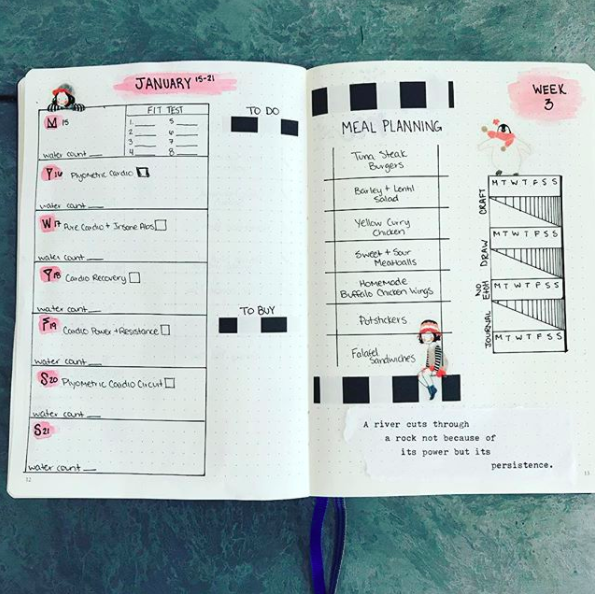 JANUARY 15-21
M 15
FIT TEST
1. ___ 5 ___
2. ___ 6 ___
3. ___ 7 ___
4 ___ 8 ___
water count ___
T 16 Plyometric Cardio
water count ___
W 17 Pure Cardio + Insane Abs
water count ___
T 18 Cardio Recovery
water count ___
F 19 Cardio Power + Resistance
water count ___
S 20 Plyometric Cardio Circuit
water count ___
S 21
water count ___
12
TO DO
TO BUY
MEAL PLANNING
Tuna Steak
Burgers
Barley + Lentil
Salad
Yellow Curry
Chicken
Sweet + Sour
Meatballs
Homemade
Buffalo Chicken Wings
Potstickers
Falafel
Sandwiches
WEEK
3
CRAFT
M T W T F S S
DRAW
M T W T F S S
NO
M T W T F S S
JOURNAL
M T W T F S S
A river cuts through
a rock not because of
its power but its
persistence.
13